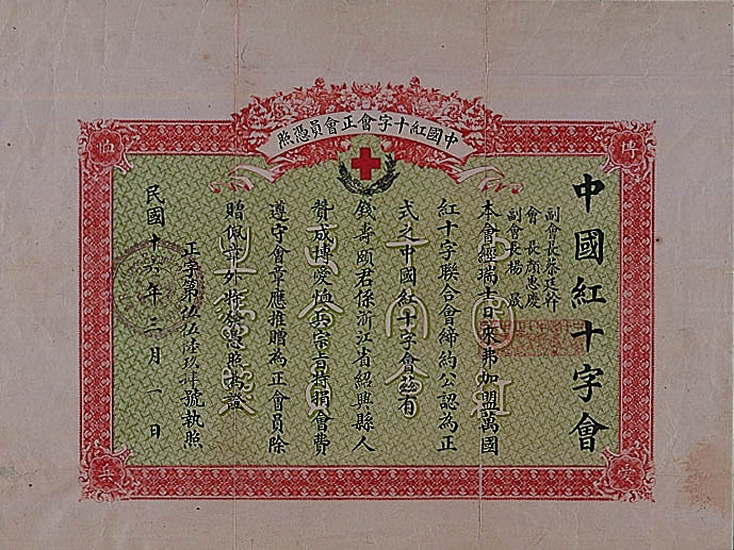 中國紅十字會正會員憑照
中國紅十字會
副會長蔡廷幹
會長顏惠慶
副會長楊晟
本會經瑞士日來弗加盟萬國
紅十字聯合會締約公認為正
式之中國紅十字會茲有
錢壽頤君係浙江省紹興縣人
贊成博愛恤兵宗旨特捐會費
遵守會章應推贈為正會員除
贈佩章外特給憑照為證
正字第伍伍陸玖肆號執照
民國十六年二月一日
博